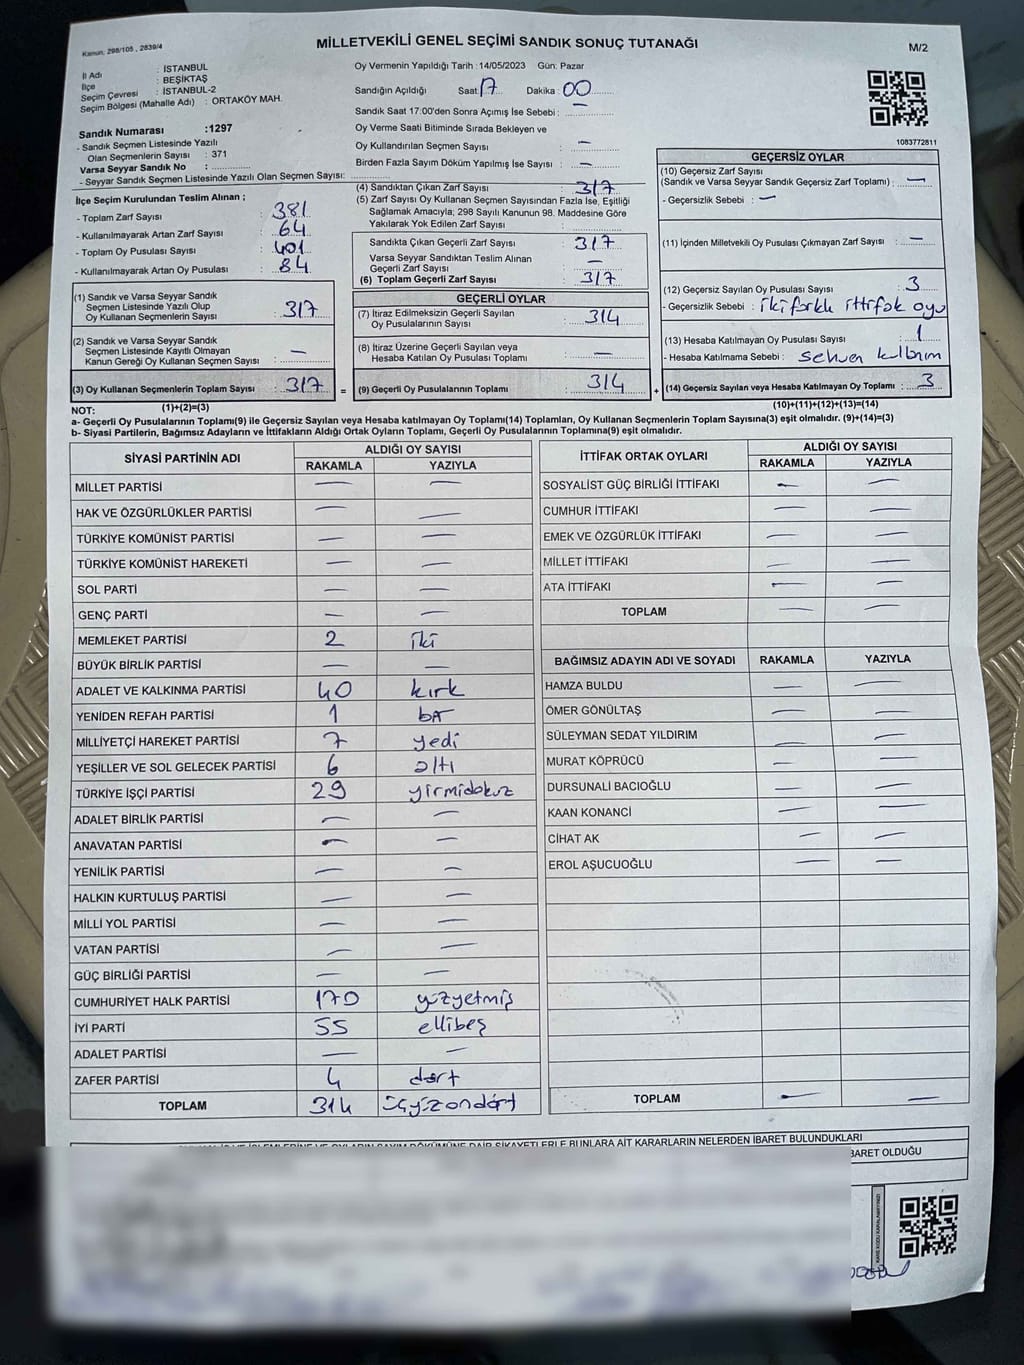 Kanun, 298/105 , 2839/4
MİLLETVEKİLİ GENEL SEÇİMİ SANDIK SONUÇ TUTANAĞI
M/2
İl Adı : İSTANBUL
İlçe : BEŞİKTAŞ
Seçim Çevresi : İSTANBUL-2
Seçim Bölgesi (Mahalle Adı) : ORTAKÖY MAH.
Oy Vermenin Yapıldığı Tarih : 14/05/2023 Gün: Pazar
Sandığın Açıldığı Saat: 17 Dakika : 00
Sandık Saat 17:00'den Sonra Açımış İse Sebebi : —
Oy Verme Saati Bitiminde Sırada Bekleyen ve
Oy Kullandırılan Seçmen Sayısı : —
Birden Fazla Sayım Döküm Yapılmış İse Sayısı : —
1083772811
Sandık Numarası : 1297
- Sandık Seçmen Listesinde Yazılı
Olan Seçmenlerin Sayısı : 371
Varsa Seyyar Sandık No :
- Seyyar Sandık Seçmen Listesinde Yazılı Olan Seçmen Sayısı:
İlçe Seçim Kurulundan Teslim Alınan ;
- Toplam Zarf Sayısı : 381
- Kullanılmayarak Artan Zarf Sayısı : 64
- Toplam Oy Pusulası Sayısı : 401
- Kullanılmayarak Artan Oy Pusulası : 84
(1) Sandık ve Varsa Seyyar Sandık
Seçmen Listesinde Yazılı Olup
Oy Kullanan Seçmenlerin Sayısı : 317
(2) Sandık ve Varsa Seyyar Sandık
Seçmen Listesinde Kayıtlı Olmayan
Kanun Gereği Oy Kullanan Seçmen Sayısı : —
(3) Oy Kullanan Seçmenlerin Toplam Sayısı : 317 =
(1)+(2)=(3)
(4) Sandıktan Çıkan Zarf Sayısı : 317
(5) Zarf Sayısı Oy Kullanan Seçmen Sayısından Fazla İse, Eşitliği
Sağlamak Amacıyla; 298 Sayılı Kanunun 98. Maddesine Göre
Yakılarak Yok Edilen Zarf Sayısı :
Sandıkta Çıkan Geçerli Zarf Sayısı : 317
Varsa Seyyar Sandıktan Teslim Alınan
Geçerli Zarf Sayısı : —
(6) Toplam Geçerli Zarf Sayısı : 317
GEÇERLİ OYLAR
(7) İtiraz Edilmeksizin Geçerli Sayılan
Oy Pusulalarının Sayısı : 314
(8) İtiraz Üzerine Geçerli Sayılan veya
Hesaba Katılan Oy Pusulası Toplamı : —
(9) Geçerli Oy Pusulalarının Toplamı : 314 +
GEÇERSİZ OYLAR
(10) Geçersiz Zarf Sayısı
(Sandık ve Varsa Seyyar Sandık Geçersiz Zarf Toplamı) : —
- Geçersizlik Sebebi : —
(11) İçinden Milletvekili Oy Pusulası Çıkmayan Zarf Sayısı : —
(12) Geçersiz Sayılan Oy Pusulası Sayısı : 3
- Geçersizlik Sebebi : iki farklı ittifak oyu
(13) Hesaba Katılmayan Oy Pusulası Sayısı : 1
- Hesaba Katılmama Sebebi : sehven
(14) Geçersiz Sayılan veya Hesaba Katılmayan Oy Toplamı : 3
(10)+(11)+(12)+(13)=(14)
NOT:
a- Geçerli Oy Pusulalarının Toplamı(9) ile Geçersiz Sayılan veya Hesaba katılmayan Oy Toplamı(14) Toplamları, Oy Kullanan Seçmenlerin Toplam Sayısına(3) eşit olmalıdır. (9)+(14)=(3)
b- Siyasi Partilerin, Bağımsız Adayların ve İttifakların Aldığı Ortak Oyların Toplamı, Geçerli Oy Pusulalarının Toplamına(9) eşit olmalıdır.
SİYASİ PARTİNİN ADI ALDIĞI OY SAYISI
RAKAMLA YAZIYLA
MİLLET PARTİSİ — —
HAK VE ÖZGÜRLÜKLER PARTİSİ — —
TÜRKİYE KOMÜNİST PARTİSİ — —
TÜRKİYE KOMÜNİST HAREKETİ — —
SOL PARTİ — —
GENÇ PARTİ — —
MEMLEKET PARTİSİ 2 iki
BÜYÜK BİRLİK PARTİSİ — —
ADALET VE KALKINMA PARTİSİ 40 kırk
YENİDEN REFAH PARTİSİ 1 bir
MİLLİYETÇİ HAREKET PARTİSİ 7 yedi
YEŞİLLER VE SOL GELECEK PARTİSİ 6 altı
TÜRKİYE İŞÇİ PARTİSİ 29 yirmidokuz
ADALET BİRLİK PARTİSİ — —
ANAVATAN PARTİSİ — —
YENİLİK PARTİSİ — —
HALKIN KURTULUŞ PARTİSİ — —
MİLLİ YOL PARTİSİ — —
VATAN PARTİSİ — —
GÜÇ BİRLİĞİ PARTİSİ — —
CUMHURİYET HALK PARTİSİ 170 yüzyetmiş
İYİ PARTİ 55 ellibeş
ADALET PARTİSİ — —
ZAFER PARTİSİ 4 dört
TOPLAM 314 üçyüzondört
İTTİFAK ORTAK OYLARI ALDIĞI OY SAYISI
RAKAMLA YAZIYLA
SOSYALİST GÜÇ BİRLİĞİ İTTİFAKI — —
CUMHUR İTTİFAKI — —
EMEK VE ÖZGÜRLÜK İTTİFAKI — —
MİLLET İTTİFAKI — —
ATA İTTİFAKI — —
TOPLAM — —
BAĞIMSIZ ADAYIN ADI VE SOYADI RAKAMLA YAZIYLA
HAMZA BULDU — —
ÖMER GÖNÜLTAŞ — —
SÜLEYMAN SEDAT YILDIRIM — —
MURAT KÖPRÜCÜ — —
DURSUNALİ BACIOĞLU — —
KAAN KONANCİ — —
CİHAT AK — —
EROL AŞUCUOĞLU — —
TOPLAM — —
DÖKÜMÜNE DAİR ŞİKAYETLERLE BUNLARA AİT KARARLARIN NELERDEN İBARET BULUNDUKLARI
BARET OLDUĞU